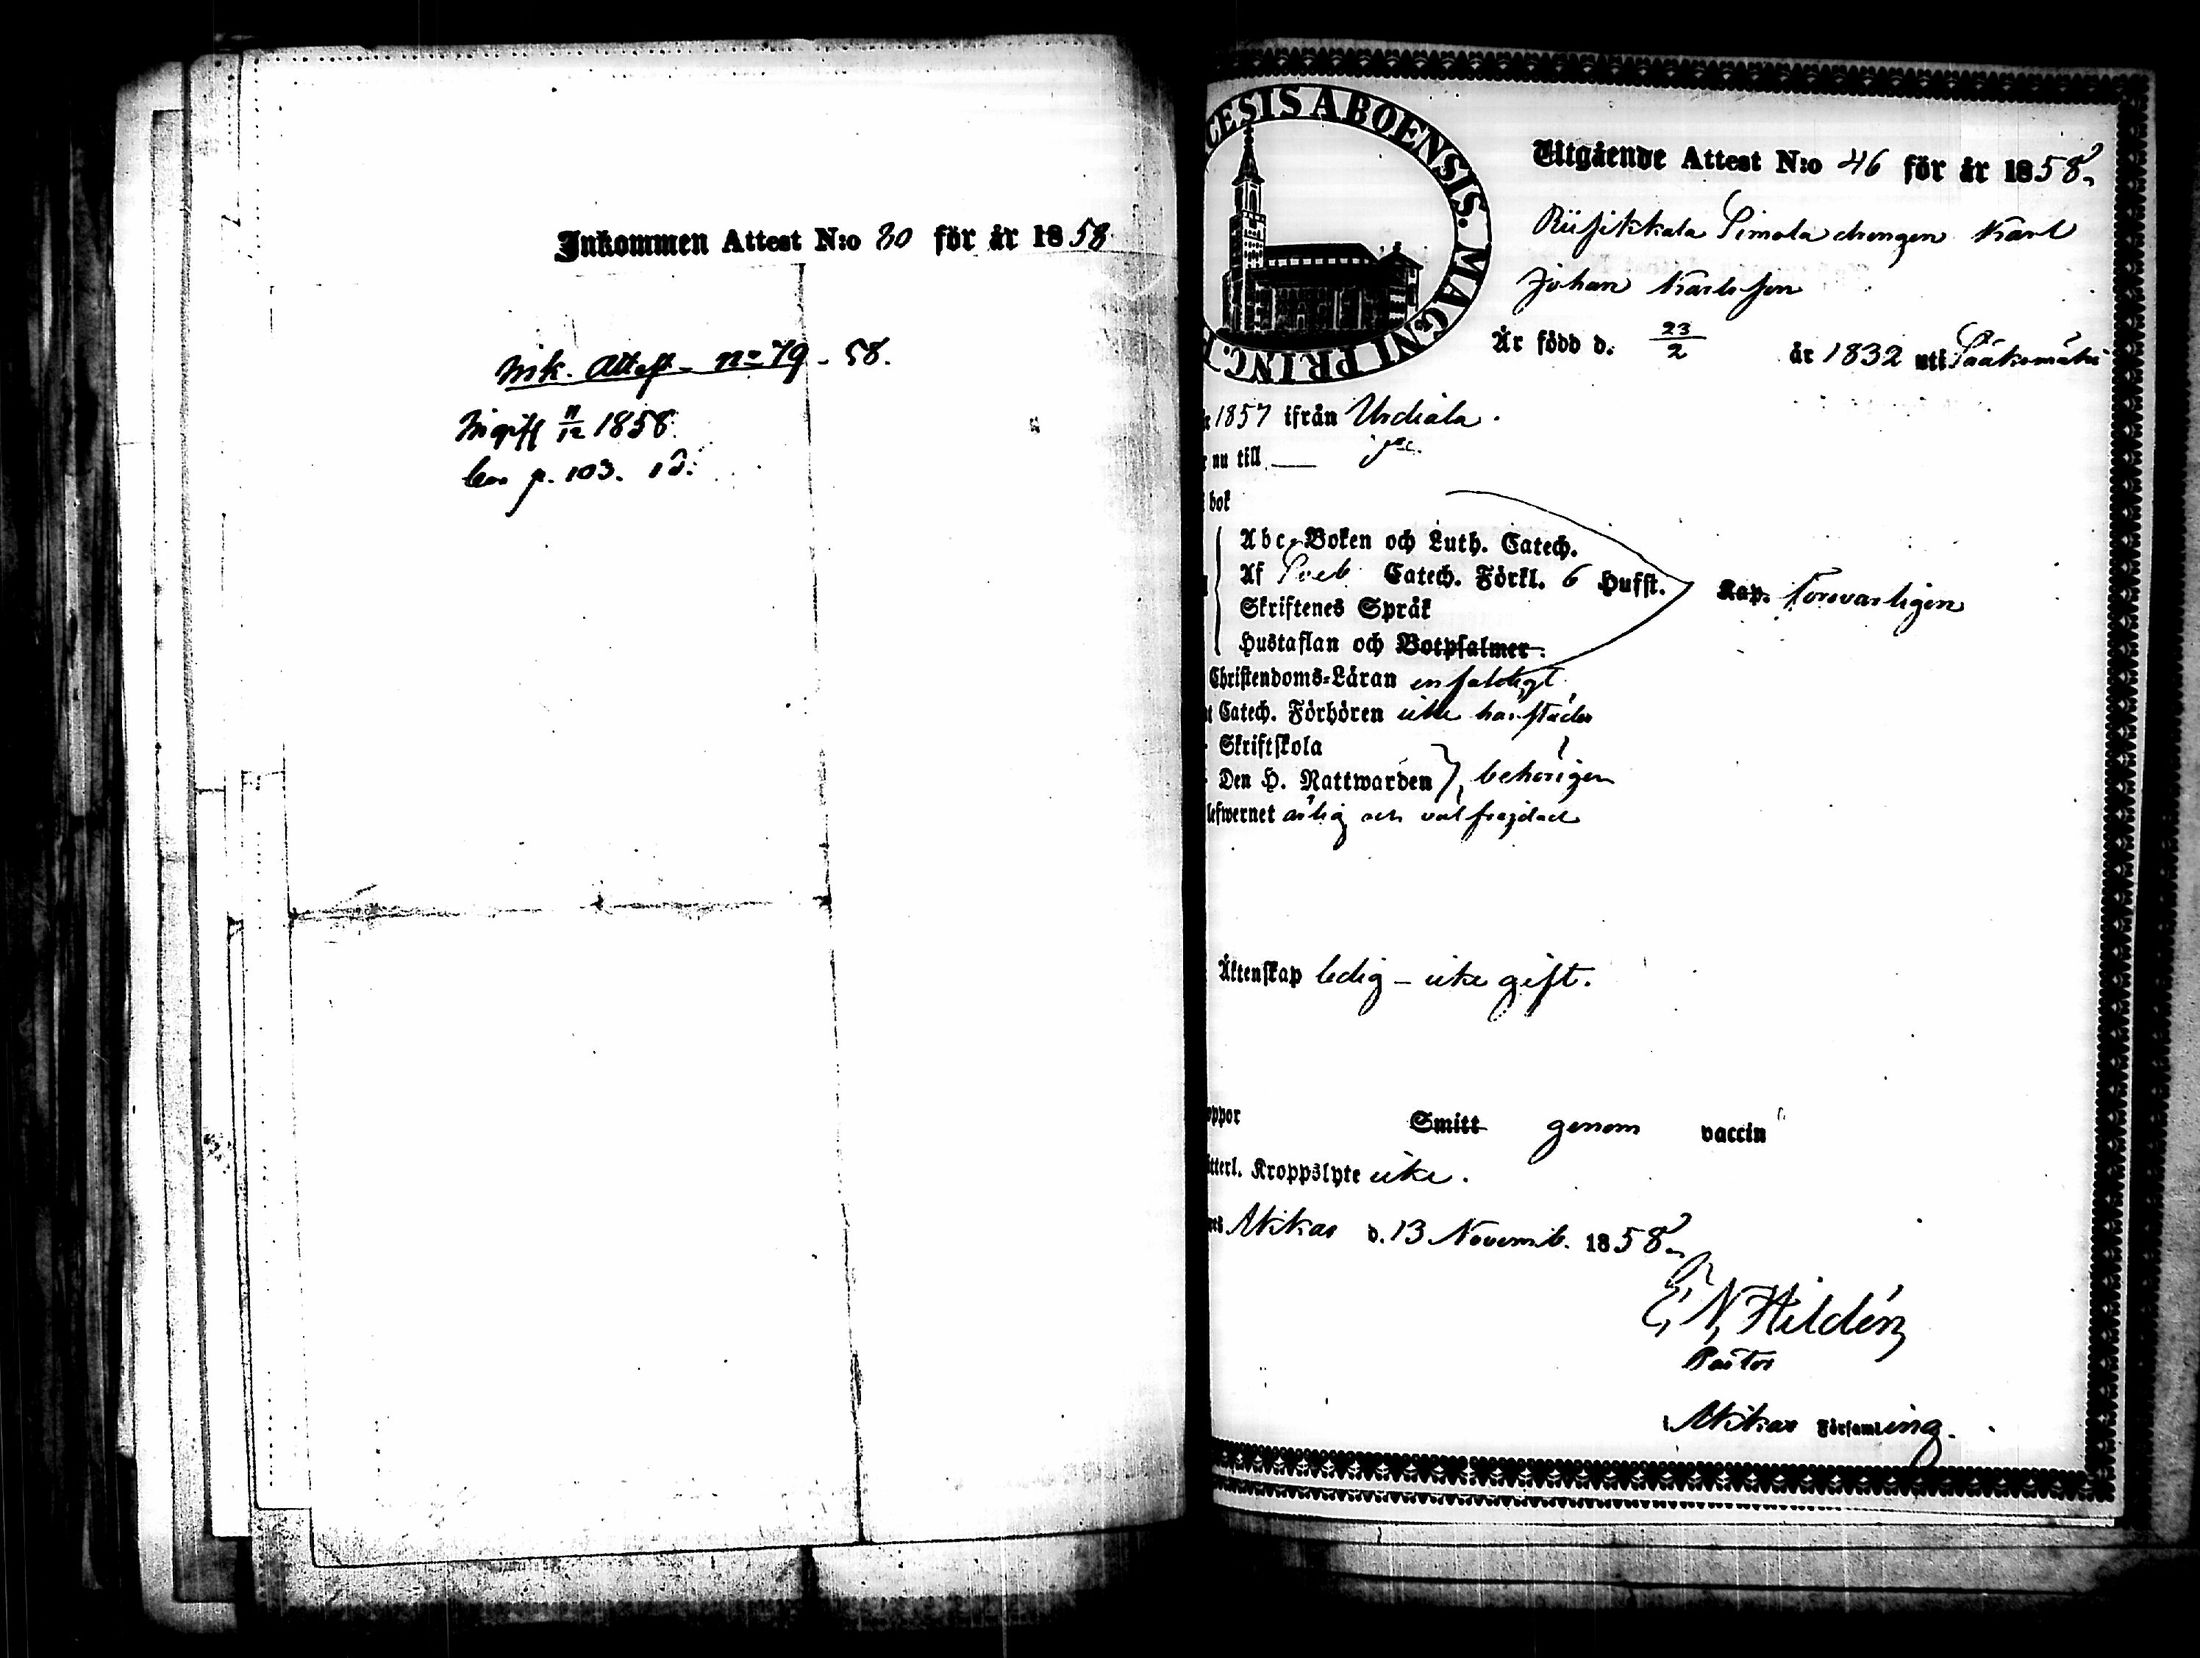 Inkommen Attest N:o 80 för år 1858
Ink. Attest n:o 79 - 58.
Ingift 11/12 1858.
p. 103.
CESIS ABOENSIS. MAGNI PRINC.
Utgående Attest N:o 46 för år 1858.
Simola drengen Karl
Johan Karlsson
Är född d. 23/2 år 1832 uti Sääksmäki
1857 ifrån Urdiala.
nu till
bok
Abc-Boken och Luth. Catech.
Af Sveb. Catech. Förkl. 6 Hufst. Kap. Försvarligen
Skriftenes Språk
Hustaflan och Botpsalmer.
Christendoms-Läran enfaldigt
Catech. Förhören icke
Skriftskola
Den H. Nattwarden behörigen
lefwernet ärlig och välfrejdad
Äktenskap ledig - icke gift.
oppor Smitt genom vaccin
tterl. Kroppslyte icke.
Akkas d. 13 Novemb. 1858.
E. N. Hildén
Pastor
Akkas Församling.